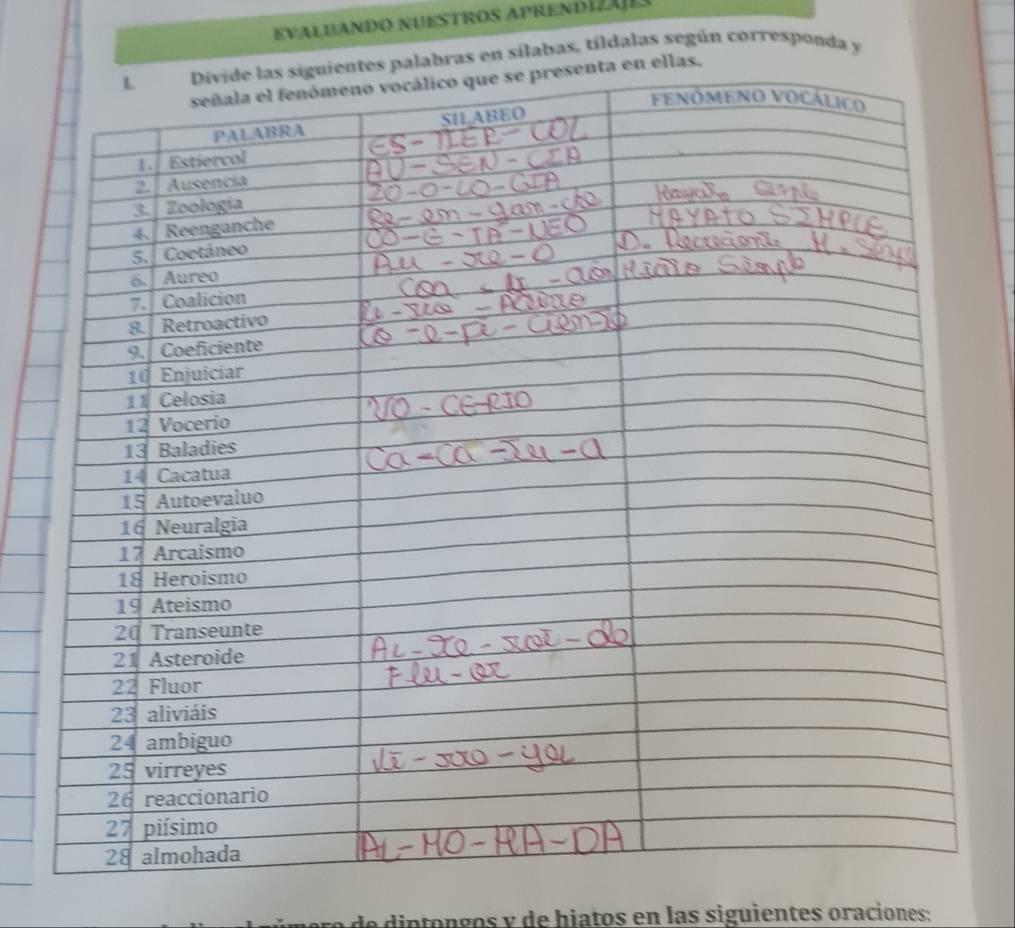 EVALUANDO NUESTROS APRENDIZAJES
I. Divide las siguientes palabras en sílabas, tíldalas según corresponda y
señala el fenómeno vocálico que se presenta en ellas.
PALABRA SILABEO FENÓMENO VOCÁLICO
1. Estiercol ES-TIER-COL
2. Ausencia AU-SEN-CIA
3. Zoologia ZO-O-LO-GIA
4. Reenganche Re-en-gan-che
5. Coetáneo CO-E-TA-NEO HAYATO SIMPLE
6. Aureo Au-re-o
7. Coalicion Simple
8. Retroactivo
9. Coeficiente
10 Enjuiciar
11 Celosia
12 Vocerio VO-CE-RIO
13 Baladies
14 Cacatua Ca-Ca-Tu-a
15 Autoevaluo
16 Neuralgia
17 Arcaismo
18 Heroismo
19 Ateismo
20 Transeunte
21 Asteroide
22 Fluor Flu-or
23 aliviáis
24 ambiguo
25 virreyes
26 reaccionario
27 piísimo
28 almohada AL-MO-HA-DA
de diptongos y de hiatos en las siguientes oraciones: